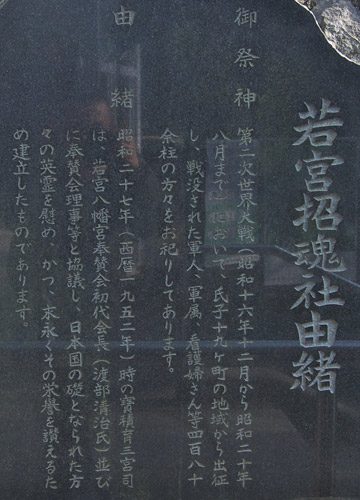 若宮招魂社由緒
御祭神
第二次世界大戦(昭和十六年十二月から昭和二十年
八月まで)において、氏子十九ヶ町の地域から出征
し、戦没された軍人、軍属、看護婦さん等四百八十
余柱の方々をお祀りしてあります。
由緒
昭和二十七年(西暦一九五二年)時の寶積育三宮司
は、若宮八幡宮奉賛会初代会長(渡部清治氏)並び
に奉賛会理事等と協議し、日本国の礎となられた方
々の英霊を慰め、かつ、末永くその栄誉を讃えるた
め建立したものであります。